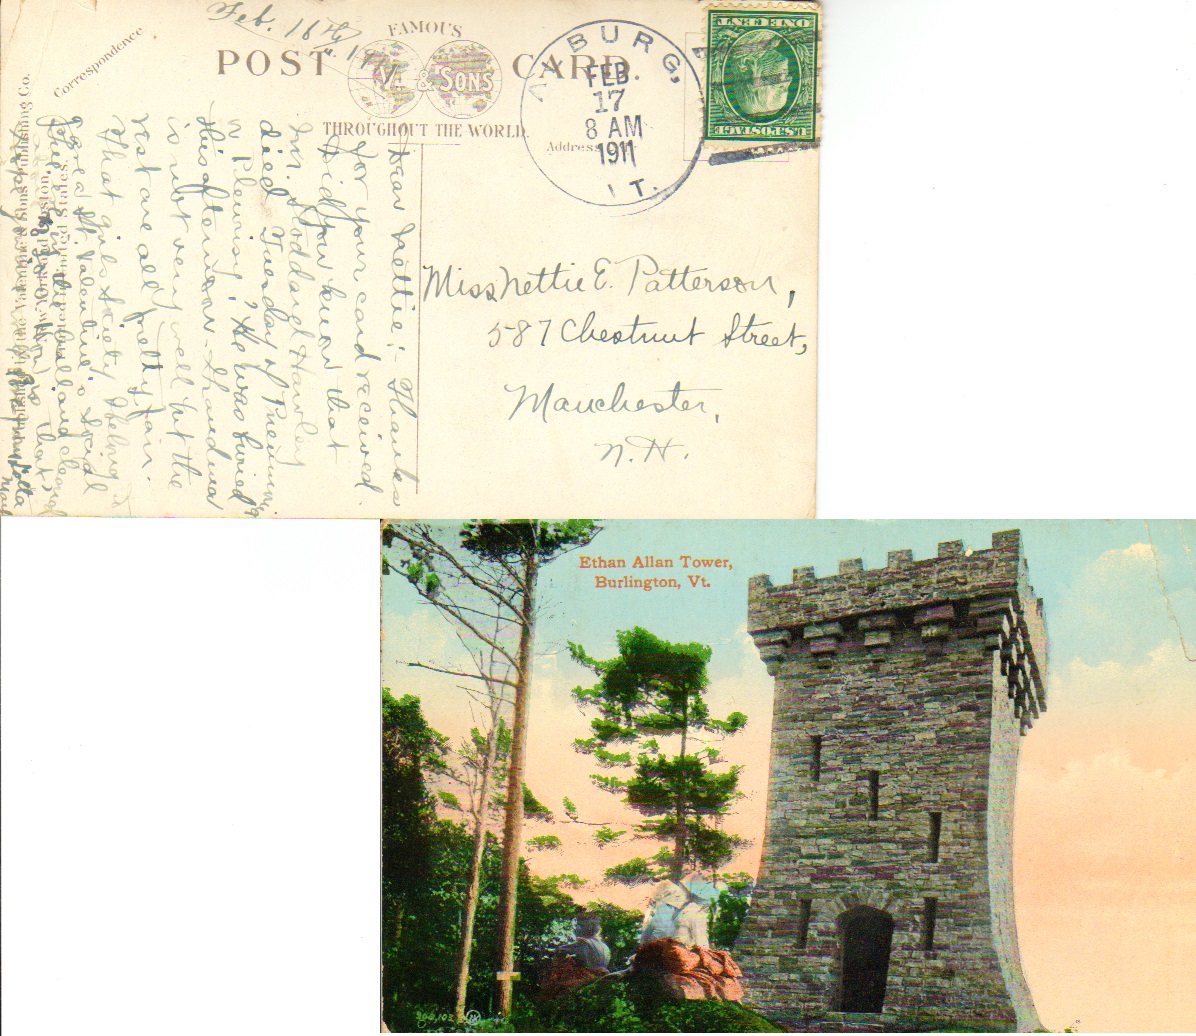 Feb. 16th 1911
Correspondence
POST CARD.
FAMOUS
V. & SONS
THROUGHOUT THE WORLD.
Address
BURG,
FEB
17
8 AM
1911
VT.
ONE CENT
U.S. POSTAGE
Dear Nettie; - Thanks
for your card received.
Did you know that
Mr. Goddard Hawley
died Tuesday of Pneumonia
Pleurisy? He was buried
this afternoon. Grandma
is not very well but the
rest are all pretty fair.
That girls society I belong to
gave a St. Valentine's Social
in the hall and
Miss Nettie E. Patterson,
587 Chestnut Street,
Manchester,
N.H.
Publishing Co.
New York and Boston.
United States.
Ethan Allan Tower,
Burlington, Vt.